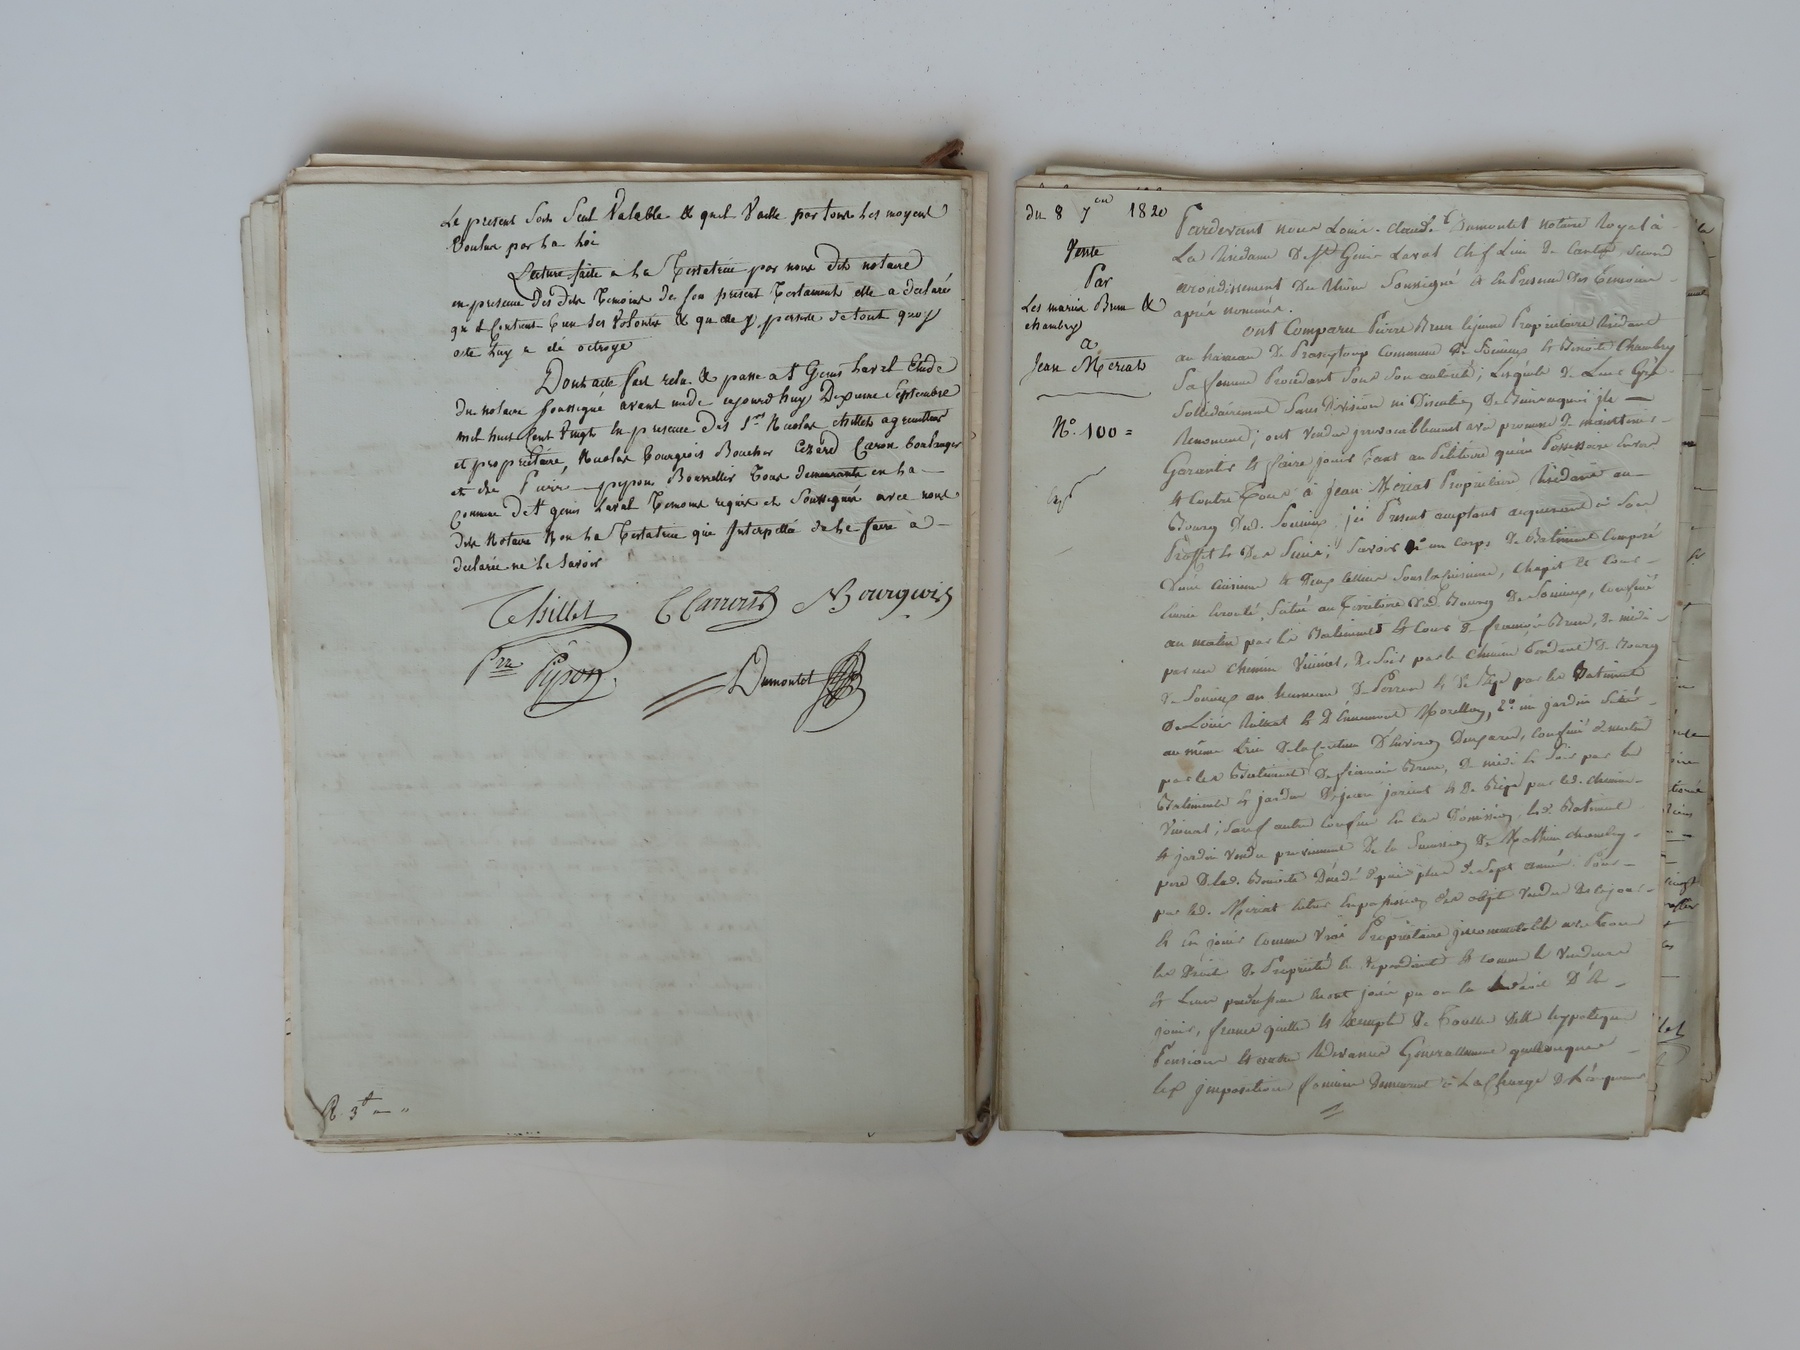 Le present Soit Seul Valable & quil Vaille par tous les moyens
Voulus par la Loi
Lecture faite a la Testatrice par nous dit notaire
en presence des dits temoins de son present Testament elle a declaré
qu il Contient ses Volontés & qu elle y persiste de tout quoy
acte luy a été octroyé
Dont acte fait relu & passé a St Genis Laval Etude
du notaire soussigné avant midi aujourd'huy Septembre
mil huit Cent Vingt En presence des Srs Nicolas thillet agriculteur
et propriétaire, Nicolas Bourgeois Boucher Cézard Caron boulanger
et de Pierre pypon Bourrellier Tous demeurants en la
Commune de St genis Laval Temoins requis et Soussignés avec nous
dit Notaire Non la Testatrice qui Interpellée de le faire a
declaré ne le Savoir
Thillet C Carron N Bourgeois
Pre Pipon Dumontet
R. 3 f
du 8 7bre 1820
Vente
Par
Les mariés Brun &
chambry
a
Jean Meriat
No. 100 =
Pardevant nous Louis. Claude Dumontet notaire Royal à
La Résidence De St Genis Laval Chef Lieu de Canton Second
arondissement Du Rhône Soussigné et En Presence Des Temoins
après nommés.
ont Comparu Pierre Brun Propriétaire Résidant
au hameau De Commune De Soucieu & Benoite Chambry
Sa femme Procédant Sous Son autorité; Lesquels De Leur Gré
Solidairement Sans Division ni Discution De Biens a quoi ils
Renoncent; ont vendu irrevocablement avec promesse De maintenir
Garantir & faire jouir Tant au Pétitoire qu'au Possessoire Envers
& Contre Tous à Jean Meriat Propriétaire Résidant au
Bourg Dud. Soucieu ici Present acceptant acquereur à Son
Profit & Des Siens; Savoir un Corps De Batiment Composé
D'une Cuisine & Deux Chapit & Cour
Situé au Territoire Dud. Bourg De Soucieu, Confiné
au matin par Le Batiment & Cour De françois Brun, De midi
par un chemin Vicinal, De Soir par le Chemin Tendant Du Bourg
De Soucieu au hameau De & De Bize par les Batiment
De Louis & D'Ennemond Morellon, 2º. un jardin Situé
au même Lieu De la Contenue D'environ Confiné De matin
par les Batiment De françois Brun, De midi & Soir par les
Batiments & jardin De jean & De Bize par led. chemin
Vicinal; Sauf autre Confins En Cas D'omission, Lesd. Batiment
& jardin Vendu proviennent De la Succession De Mathieu chambry
pere De lad. Benoite Décédé depuis plus De Sept années Pour
par led. Meriat Entrer En possession Des objet vendu Des ce jour
& En jouir Comme Vrai Propriétaire jncommutable avec tous
les Droits De Propriété En dépendant & comme les Vendeurs
& Leurs prédécesseurs En ont joui pu ou Du En
jouir, francs quittes & Exempts De Toutes Dettes hypoteques
Pensions & autres Redevances Generallement quelconques
Les jmpositions foncieres Demeurant à La Charge De L'acquereur